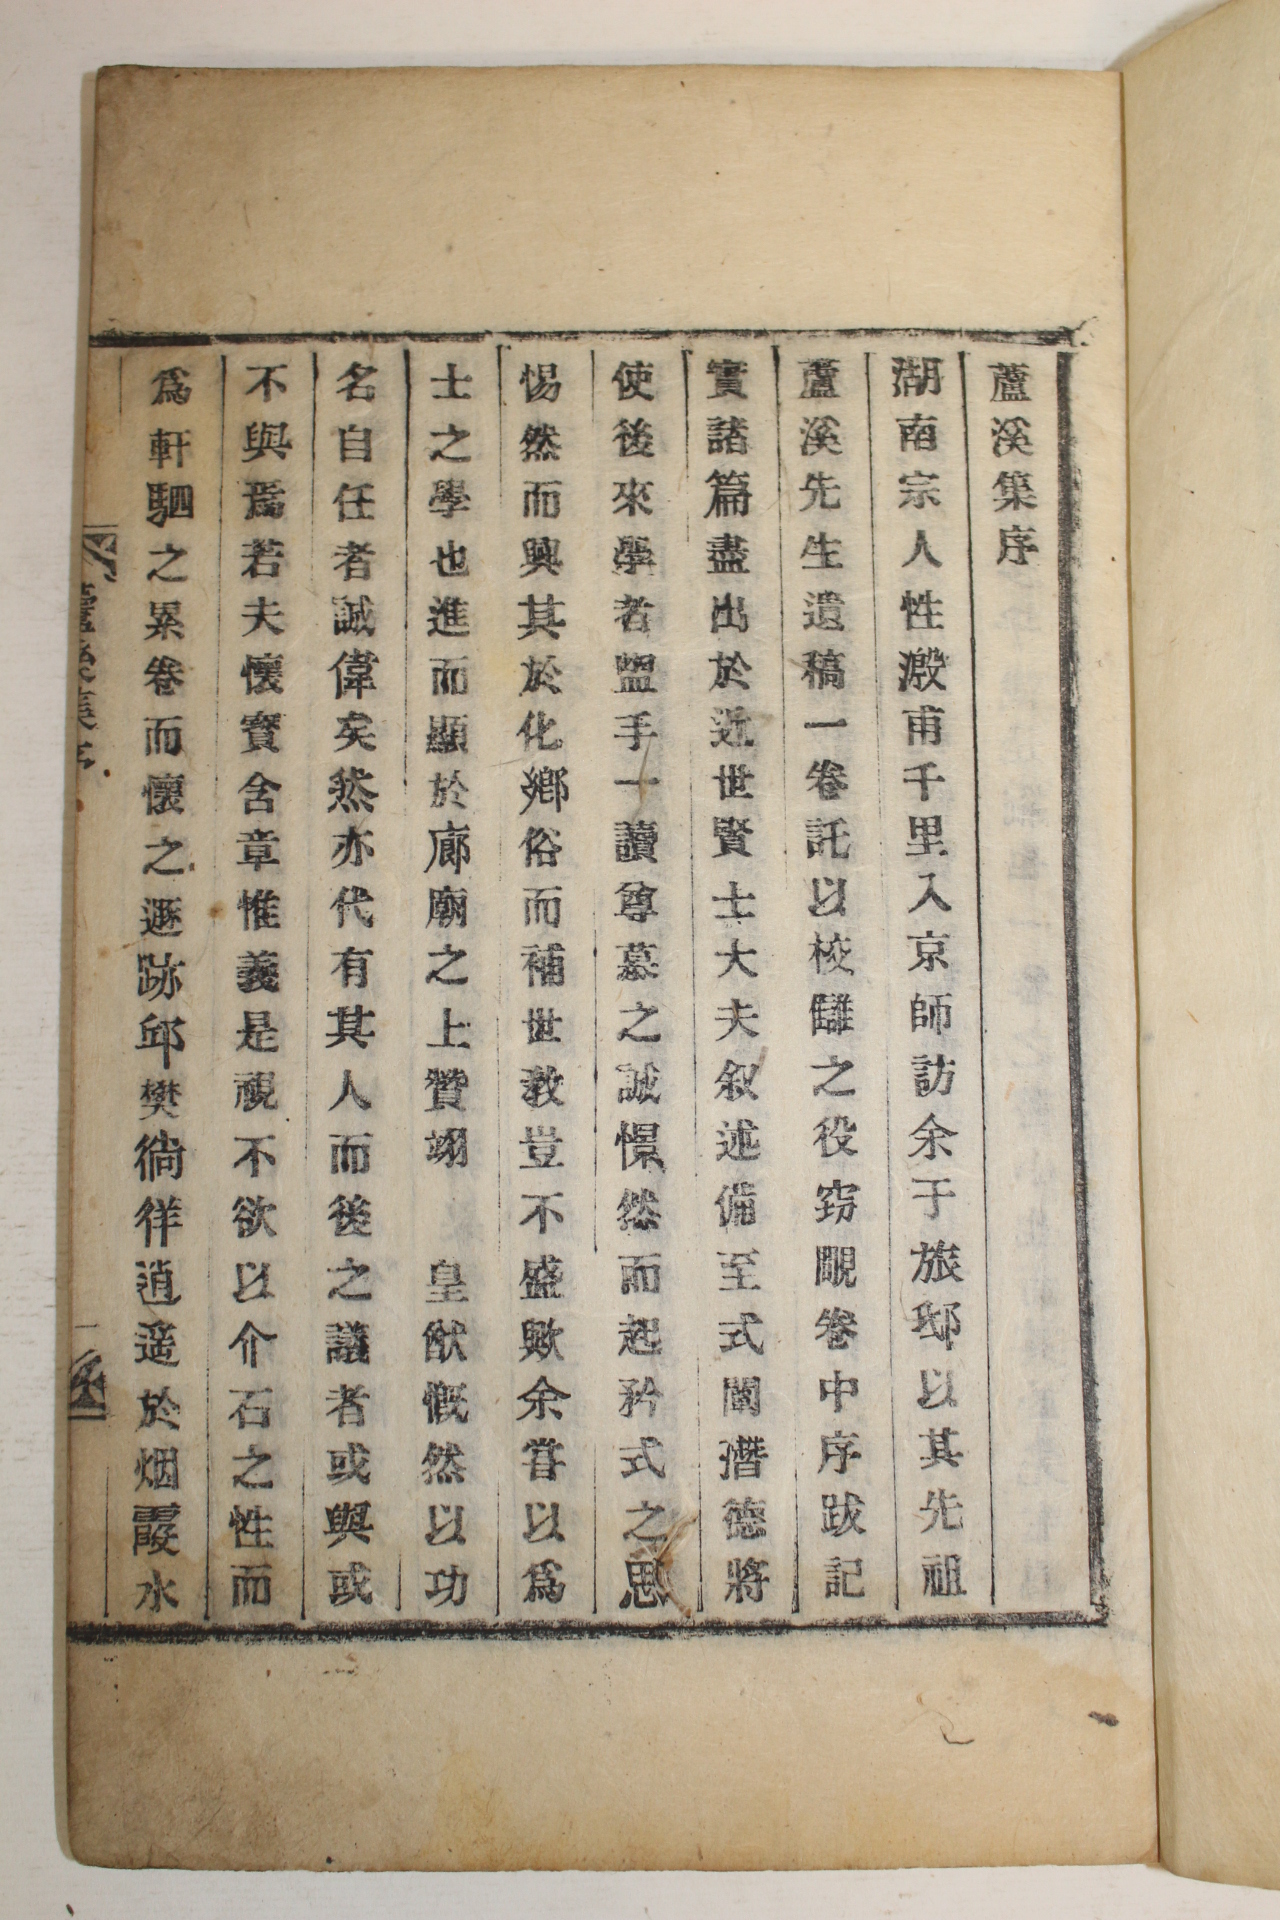 蘆溪集序
湖南宗人性澱甫千里入京師訪余于旅邸以其先祖
蘆溪先生遺稿一卷託以校讎之役窃覸卷中序跋記
實諸篇盡出於近世賢士大夫叙述備至式闡潛德將
使後來學者盥手一讀尊慕之誠憬然而起矜式之思
惕然而興其於化鄕俗而補世敎豈不盛歟余嘗以爲
士之學也進而顯於廊廟之上贊翊 皇猷慨然以功
名自任者誠偉矣然亦代有其人而後之議者或與或
不與焉若夫懷寶含章惟義是視不欲以介石之性而
爲軒駟之累卷而懷之遯跡邱樊徜徉逍遥於烟霞水
蘆溪集序
一